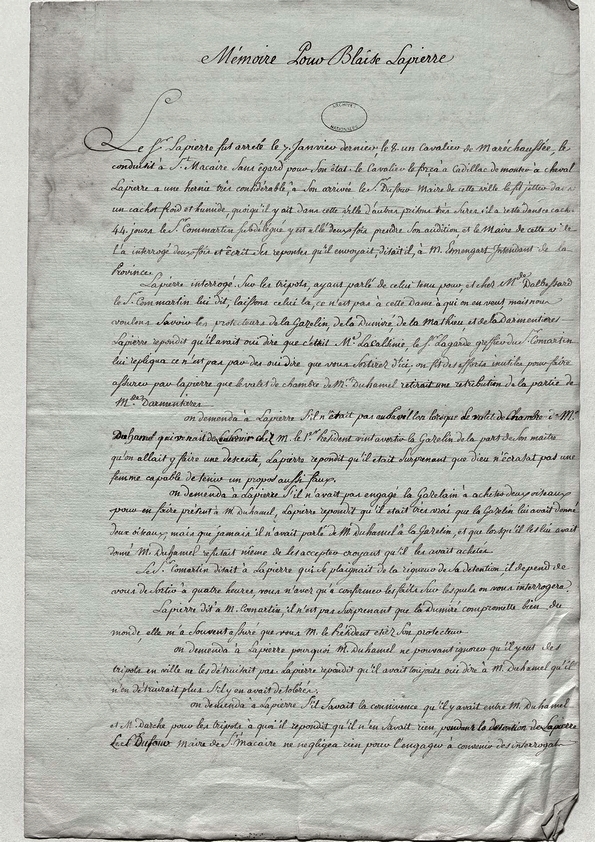 Mémoire Pour Blaise Lapierre
ARCHIVES NATIONALES
Le Sr. Lapierre fut arreté le 7. Janvier dernier, le 8. un Cavalier de Maréchaussée, le
conduisit à St. Macaire Sans égard pour Son état. le Cavalier le força à Cadillac de monter à cheval
Lapierre a une hernie très considérable, à Son arrivée le Sr. Dufour Maire de cette ville le fit jetter dans
un cachot froid et humide, quoiqu'il y ait dans cette ville d'autres prisons très Sures. il a resté dans ce cachot
44. jours, le Sr. Commartin Subdélégué y est allé deux fois prendre Son audition et le Maire de cette ville
l'a interrogé deux fois et écrit Ses reponses qu'il envoyait, disait il, à M. Esmengart Intendant de la
Province.
Lapierre interrogé Sur les tripots, ayant parlé de celui tenu pour et chez Mde. Dalbessard
le Sr. Commartin lui dit, laissons celui la, ce n'est pas à cette Dame à qui on en veut mais nous
voulons Savoir les protecteurs de la Gazelin, de la Dumiré, de la Mathieu et de la Darmentieres
Lapierre repondit qu'il avait oui dire que c'était Mr. Lacalonie, le Sr. Lagarde greffier du Sr. Comartin
lui repliqua ce n'est pas par des oui dire que vous Sortirez d'ici, on fit des efforts inutiles pour faire
assurer par lapierre que le valet de chambre de Mr. Duhamel retirait une retribution de la partie de
Mde. Darmentieres
on demenda à Lapierre S'il n'était pas au lorsque le valet de Chambre de Mr.
Duhamel qui venait de chez M. le 1er. Président vint avertir la Gazelin de la part de Son maitre
qu'on allait y faire une descente, Lapierre repondit qu'il était Surprenant que dieu n'écrasat pas une
femme capable de tenir un propos aussi faux.
on demenda à Lapierre S'il n'avait pas engagé la Gazelain à acheter deux oiseaux
pour en faire présent à M. Duhamel, Lapierre repondit qu'il était très vrai que la Gazelin lui avait donné
deux oiseaux, mais que jamais il n'avait parlé de M. Duhamel à la Gazelin, et que lorsqu'il les lui avait
donné M. Duhamel refusait meme de les accepter croyant qu'il les avait achetés.
Le Sr. Comartin disait à Lapierre qui Se plaignait de la rigueur de Sa detention, il depend de
vous de Sortir à quatre heures vous n'avez qu'a confirmer les faits Sur lesquels on vous interrogera.
Lapierre dit à M. Comartin, il n'est pas Surprenant que la Dumiré compromette bien du
monde elle m'a Souvent assuré que vous M. le Président etiez Son protecteur
on demenda à Lapierre pourquoi M. Duhamel ne pouvant ignorer qu'il y eut des
tripots en ville ne les détruisait pas Lapierre repondit qu'il avait toujours oui dire à M. Duhamel qu'il
n'en détruirait plus S'il y en avait de tolérés.
on demenda à Lapierre S'il Savait la connivence qu'il y avait entre M. Duhamel
et M. Darche pour les tripots à quoi il repondit qu'il n'en Savait rien, pendant la detention de Lapierre
Le Sr. Dufour Maire de St. Macaire ne negligea rien pour l'engager à convenir des interrogats